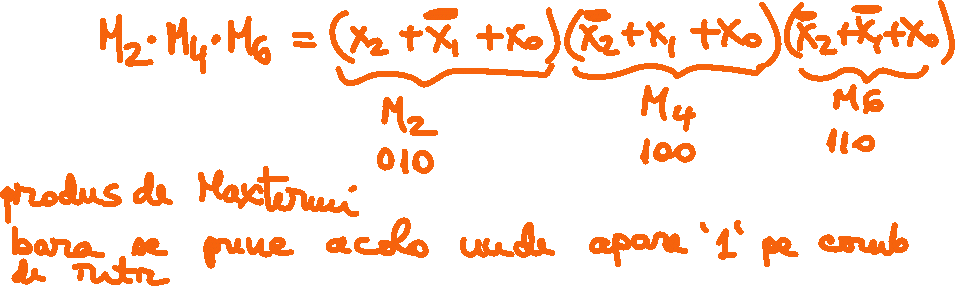 M₂·M₄·M₆ = (x₂ + x̅₁ + x₀)(x̅₂ + x₁ + x₀)(x̅₂ + x̅₁ + x₀)
M₂ M₄ M₆
010 100 110
produs de Maxtermi
bara se pune acolo unde apare '1' pe comb
de intr